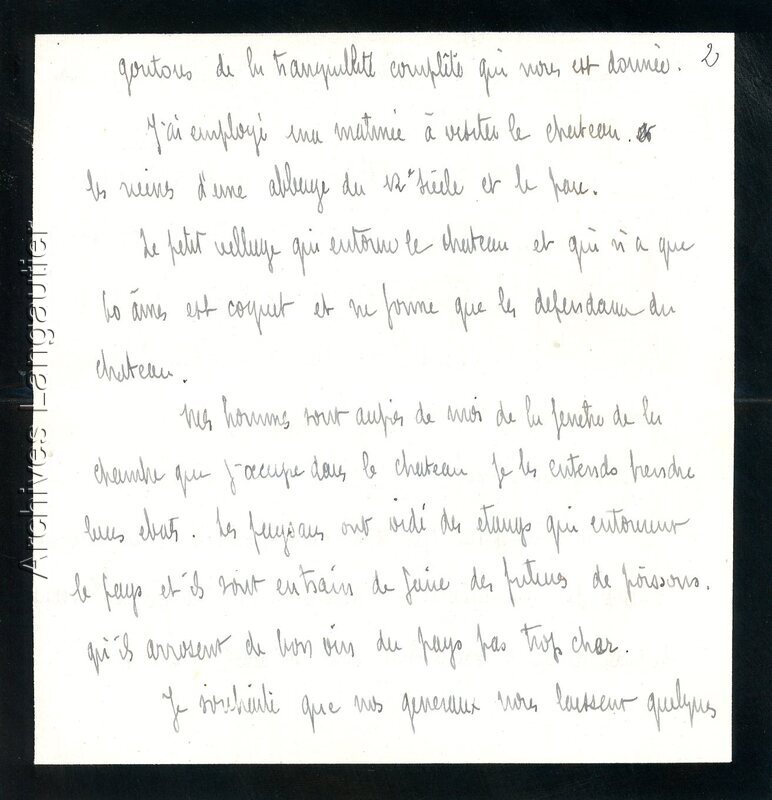 goutons de la tranquillité complète qui nous est donnée. 2
J'ai employé ma matinée à visiter le chateau. et
les ruines d'une abbaye du 12e Siècle et le parc.
Le petit village qui entoure le chateau et qui n'a que
60 âmes est coquet et ne forme que les dependances du
chateau.
Mes hommes sont auprès de moi de la fenetre de la
chambre que j'occupe dans le chateau je les entends prendre
leurs ebats. Les paysans ont vidé des etangs qui entourent
le pays et ils sont entrain de faire des fritures de poissons.
qu'ils arrosent de bon vin du pays pas trop cher.
Je souhaite que nos generaux nous laissent quelques
Archives Langautier